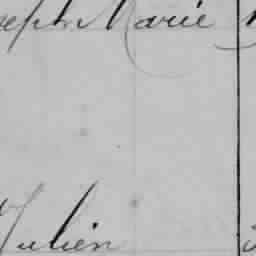 seph Marie
Julien